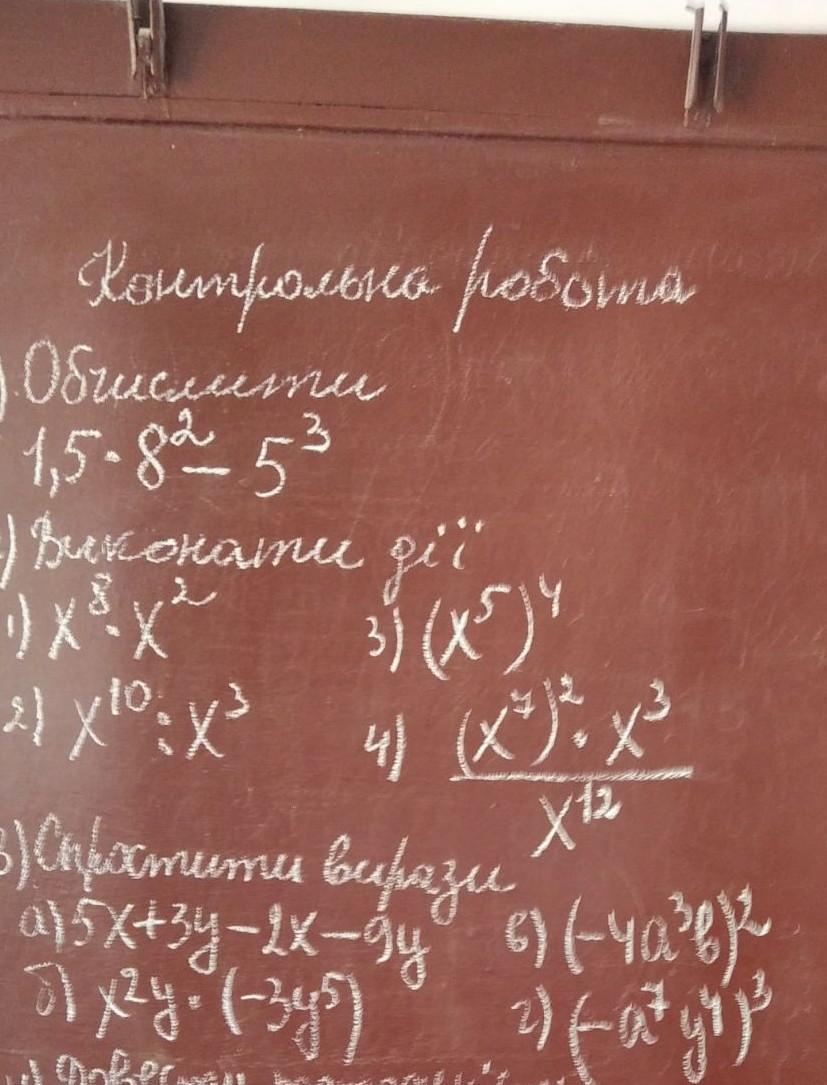 Контрольна робота
) Обчислити
1,5 · 8² – 5³
) Виконати дії
1) x⁸ · x²
3) (x⁵)⁴
2) x¹⁰ : x³
4) (x⁷)² · x³ / x¹²
3) Спростити вирази
а) 5x + 3y – 2x – 9y
в) (–4a³b)²
б) x²y · (–3y⁵)
г) (–a⁷y⁴)³
Довести